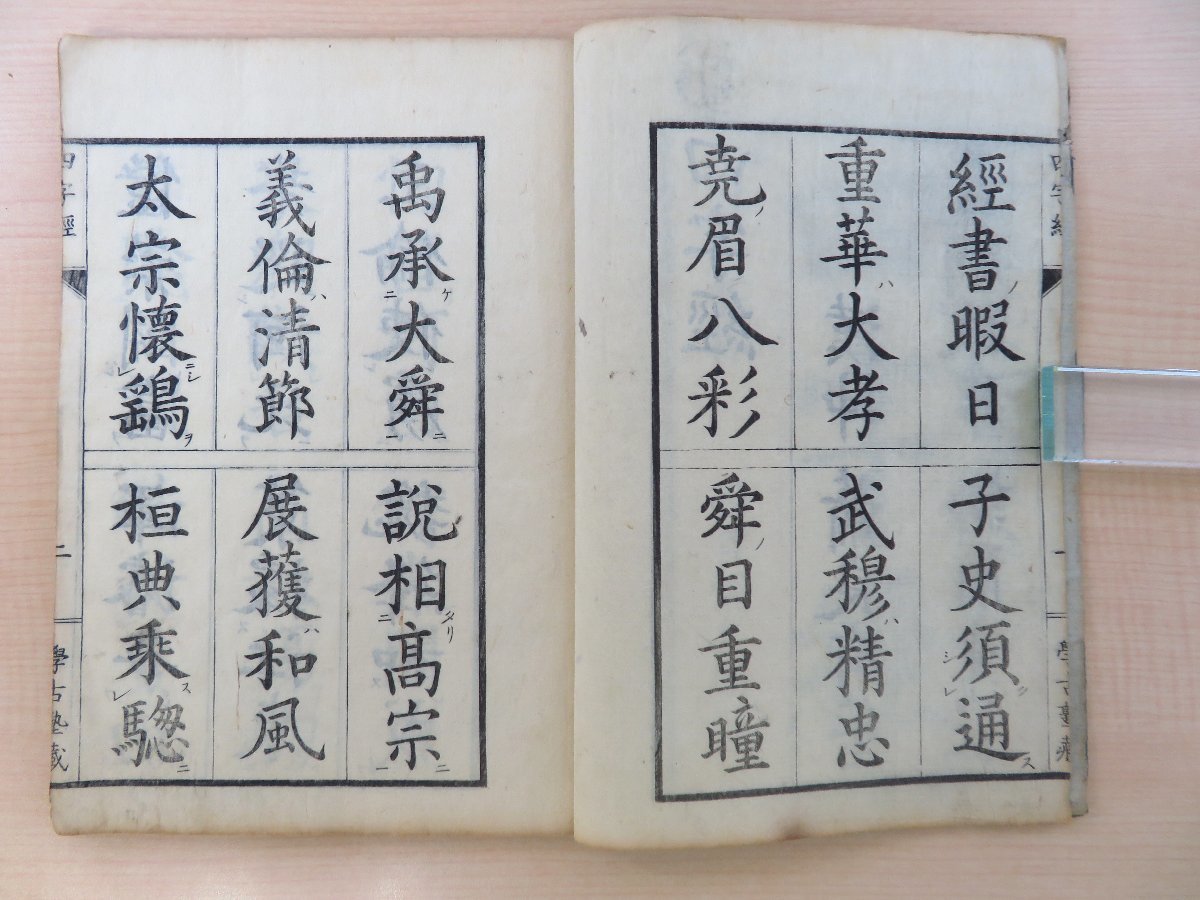 經書暇日 子史須通
重華大孝 武穆精忠
堯眉八彩 舜目重瞳
禹承大舜 說相高宗
義倫清節 展獲和風
太宗懷鷂 桓典乘驄
四字經
二
學古塾藏